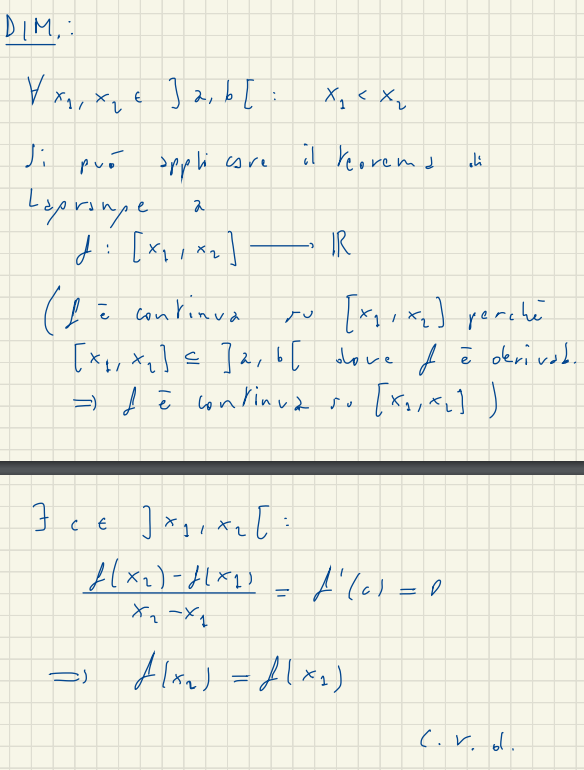 DIM.:
∀ x₁, x₂ ∈ ]a, b[ : x₁ < x₂
Si può applicare il teorema di
Lagrange a
f : [x₁, x₂] ⟶ ℝ
(f è continua su [x₁, x₂] perché
[x₁, x₂] ⊆ ]a, b[ dove f è derivab.
⇒ f è continua su [x₁, x₂])
∃ c ∈ ]x₁, x₂[ :
(f(x₂) - f(x₁))/(x₂ - x₁) = f'(c) = 0
⇒ f(x₂) = f(x₁)
c.v.d.